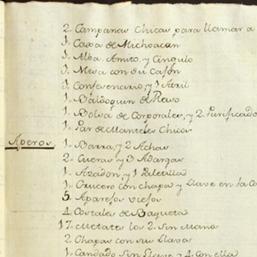 2. Campanas Chicas para llamar a
1. Capa de Michoacan
1. Alba Amito, y Cingulo
1. Mesa con su Cajon
1. Confesonario, y 1 Atril
1. Baldoquin de Raso
1. Bolsa de Corporales, y 2. Purificado
1. Par de Manteles Chicos
Aperos. 1. Barra, y 2 Achas
2. Cueras y 3 Adargas
1. Azadon, y 1 Paletilla
1. Crucero con chapa y Llave en la
5 Aparejos viejos
4. Costales de Baqueta
17. Metates los 2. Sin Mano
2. Chapas con su Llave
1. Candado Sin Llave y 4 Con ella